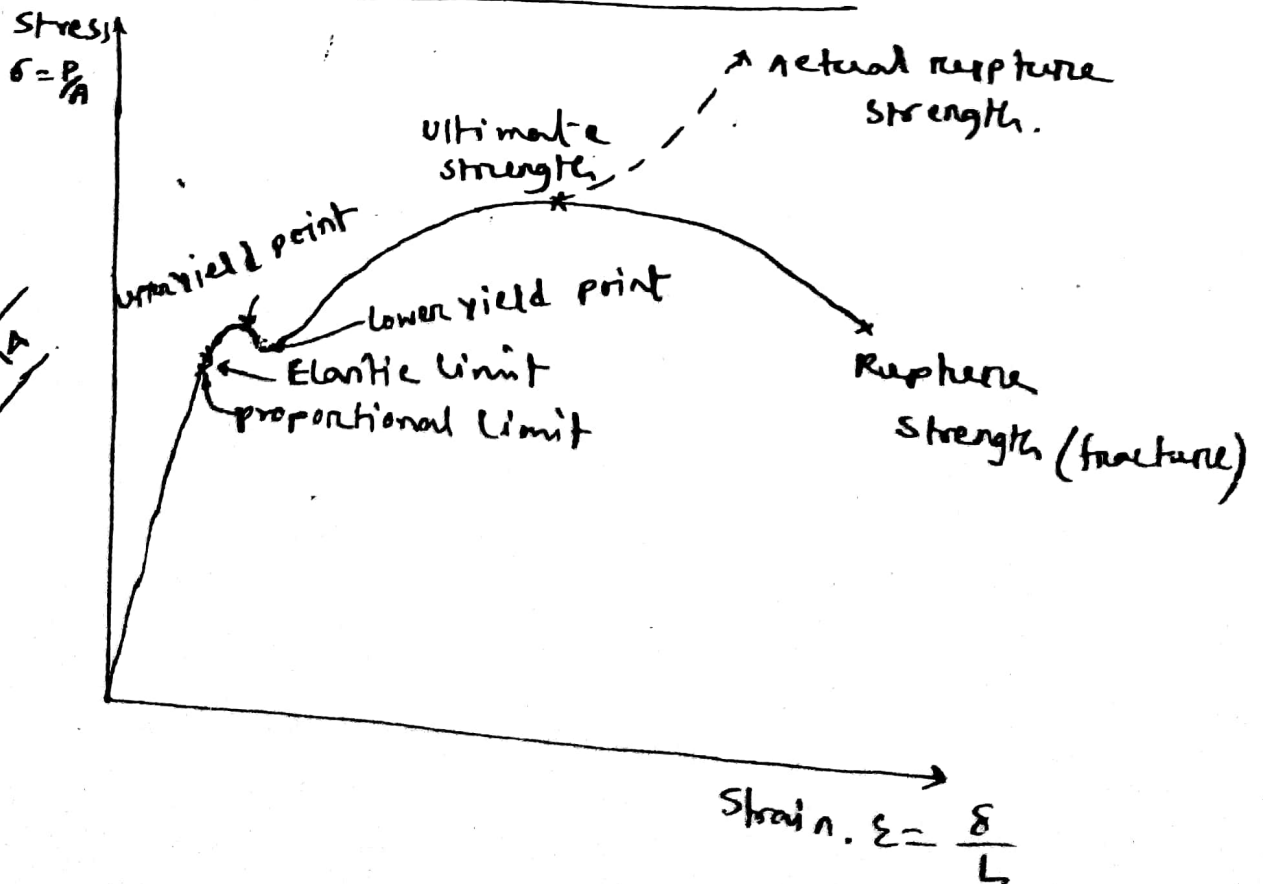 Stress
σ = P/A
Actual rupture
strength.
Ultimate
strength
upper yield point
Lower yield point
Elastic limit
proportional limit
Rupture
strength (fracture)
A
Strain. ε = δ/L